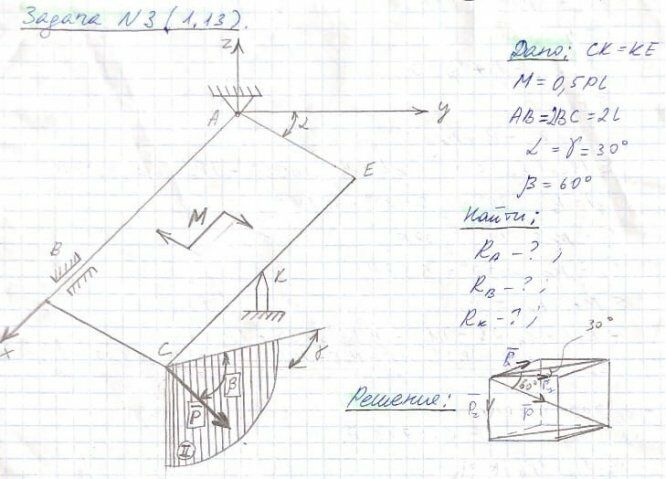 Задача N3 (1,13).
Дано: CK=KE
M=0,5Pl
AB=2BC=2l
α=γ=30°
β=60°
Найти:
R_A-?;
R_B-?;
R_K-?;
Решение:
z
A
y
α
E
M
B
K
x
C
γ
β
P̅
II
30°
60°
P̅